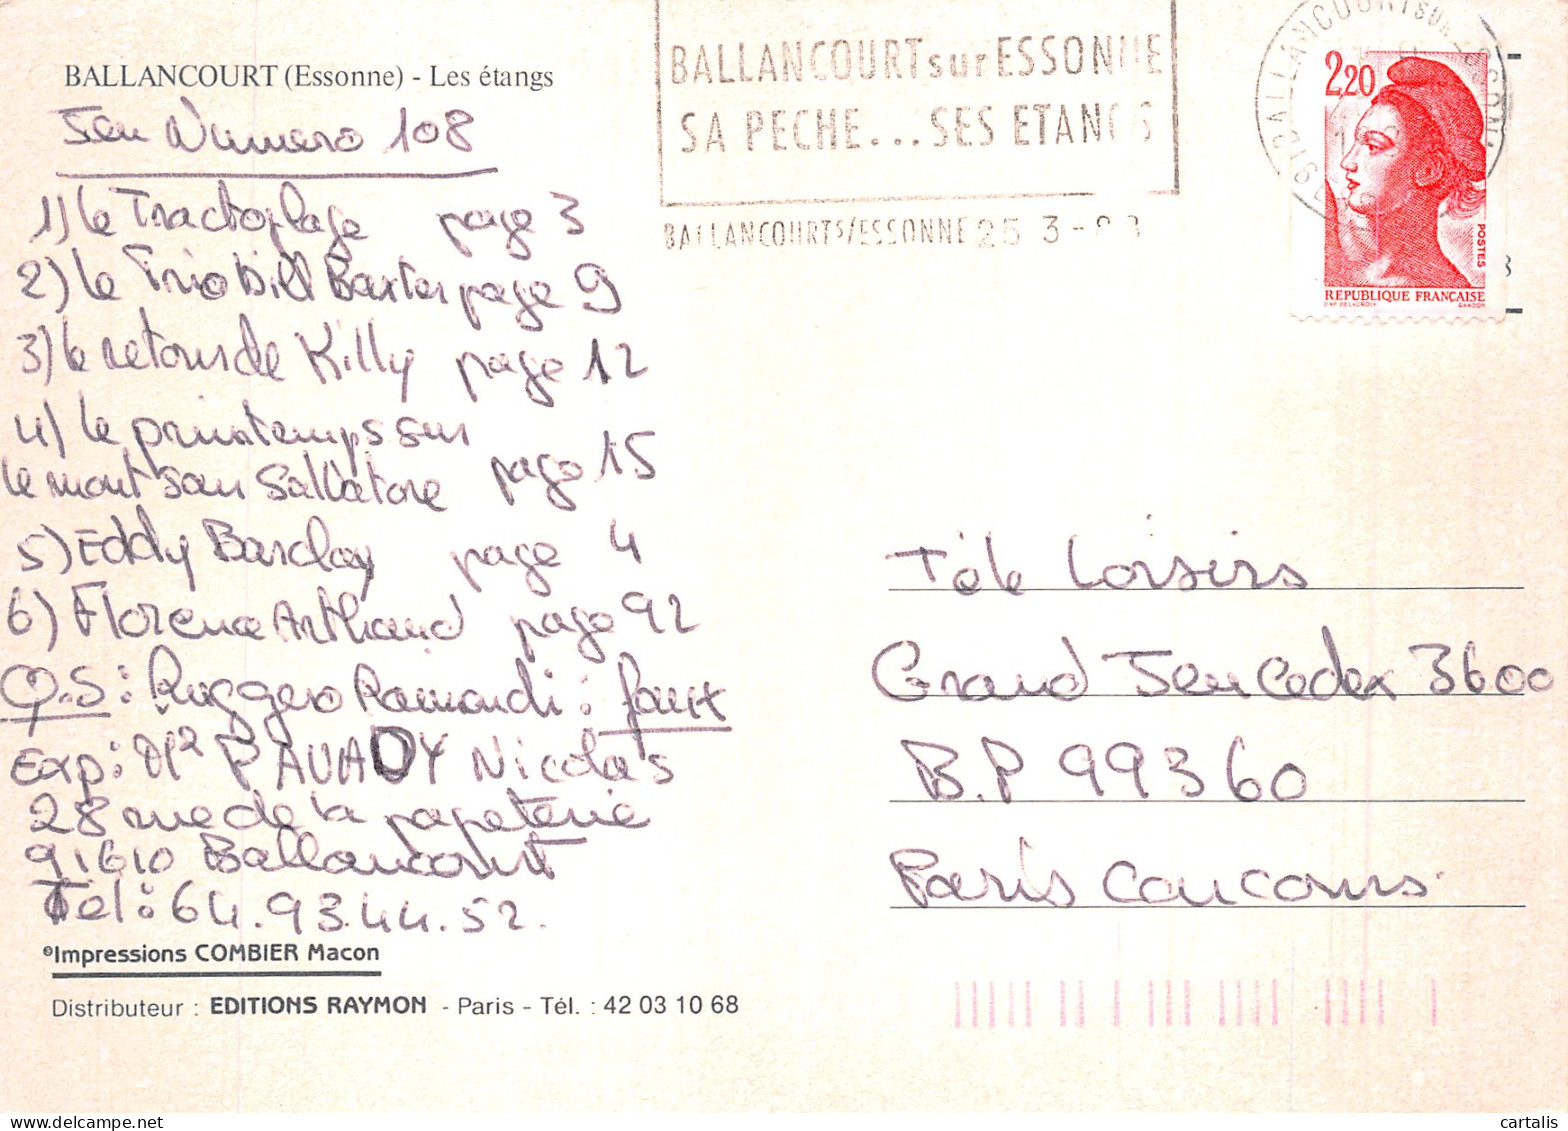 BALLANCOURT (Essonne) - Les étangs
Jeu Numero 108
1) le Tractoplage page 3
2) le Trio bill Baxter page 9
3) le retour de Killy page 12
4) le printemps sur
le mont san Salvatore page 15
5) Eddy Barclay page 4
6) Florence Arthaud page 92
Q.S: Ruggero Raimondi: faux
Exp: Mr PAVADY Nicolas
28 rue de la papeterie
91610 Ballancourt
Tél: 64.93.44.52.
©Impressions COMBIER Macon
Distributeur : EDITIONS RAYMON - Paris - Tél. : 42 03 10 68
BALLANCOURT sur ESSONNE
SA PECHE... SES ETANGS
BALLANCOURT S/ESSONNE 25 3-88
2,20
POSTES
REPUBLIQUE FRANÇAISE
D'AP. DELACROIX GANDON
Télé Loisirs
Grand Jeu Cedex 3600
B.P 99360
Paris Concours.
cartalis